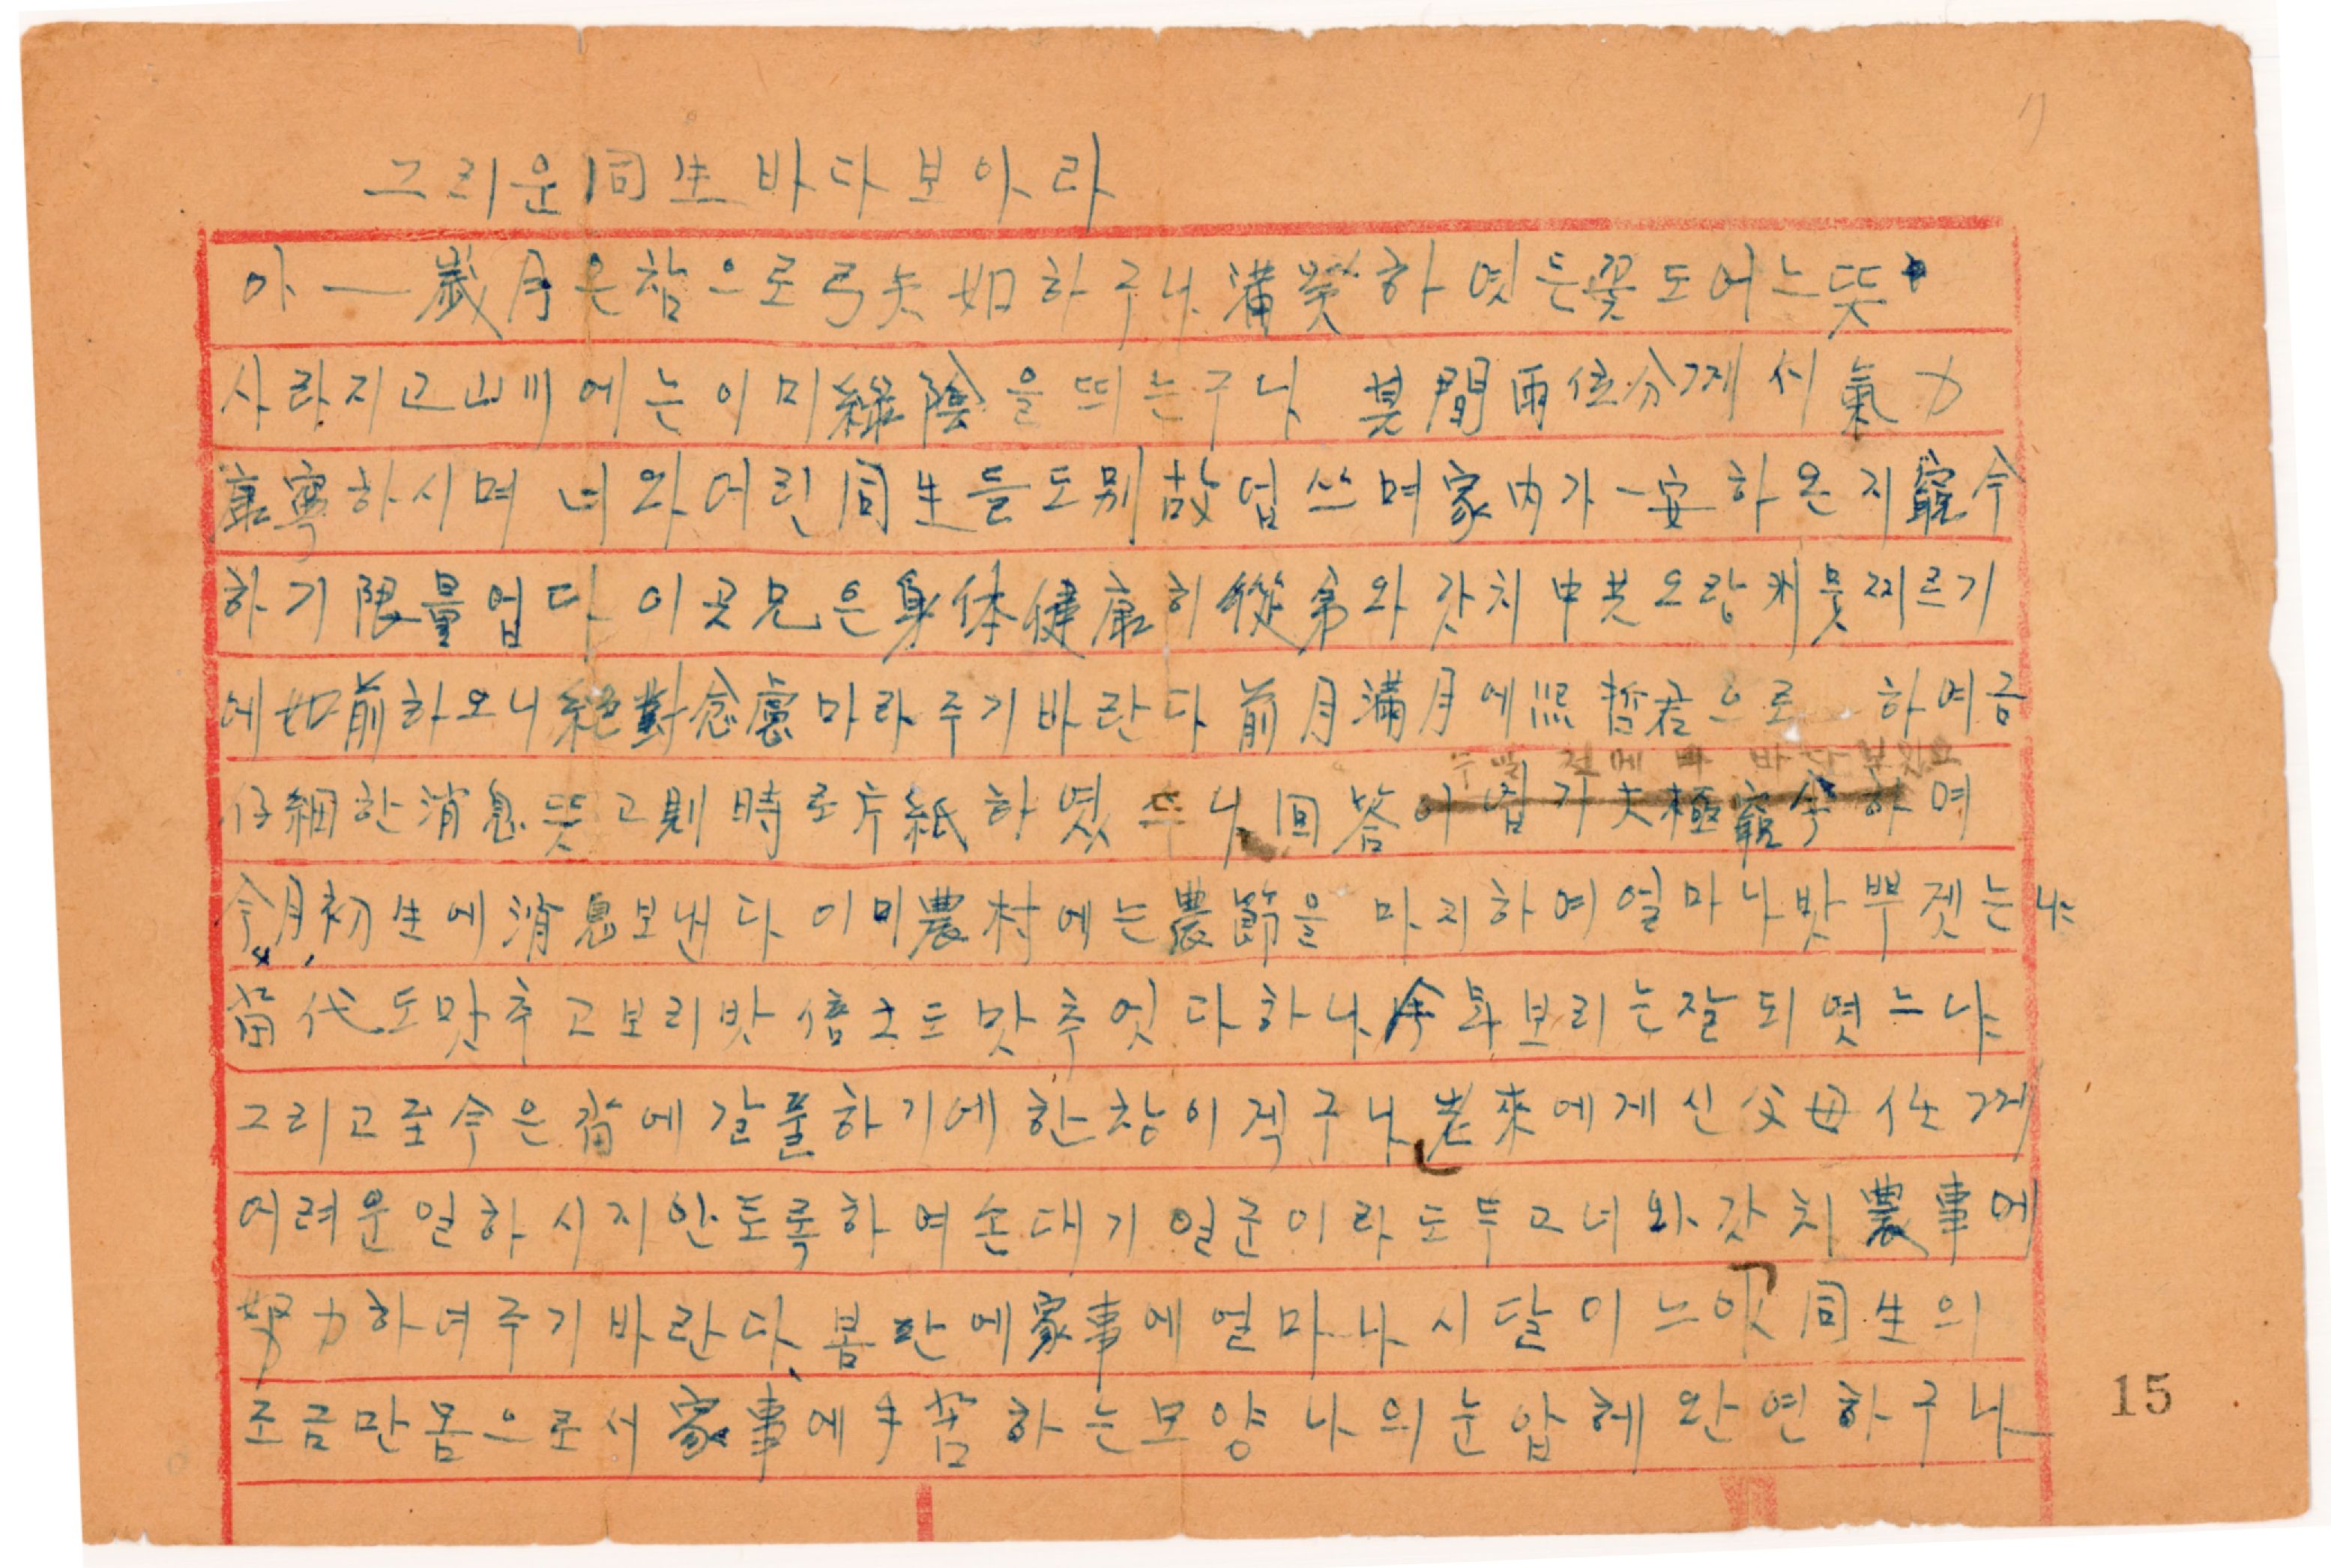 그리운同生바다보아라
아—歲月은참으로弓矢如하구나滿發하엿든꽃도어느뜻
사라지고山川에는이미綠陰을띄는구나 其間兩位分께서氣力
康寧하시며 너와어린同生들도別故업쓰며家內가一安하온지窮今
하기限量업다 이곳兄은身体健康히從弟와갓치中共오랑캐뭇찌르기
에如前하오니絶對念慮마라주기바란다 前月滿月에熙哲君으로 하여금
仔細한消息뜻고則時로片紙하였쓰나回答이업기太極窮今하며
今月初生에消息보낸다 이미農村에는農節을 마지하여얼마나밧뿌겟는냐
苗代도맛추고보리밧倍土도맛추엇다하나今年보리는잘되엿느냐
그리고至今은畓에갈풀하기에한창이겍구나老來에게신父母任께
어려운일하시지안토록하여손대기일군이라도두고너와갓치農事에
努力하녀주기바란다 봄만에家事에얼마나시달이느야 同生의
조금만몸으로서家事에手苦하는모양나의눈압헤완연하구나
15